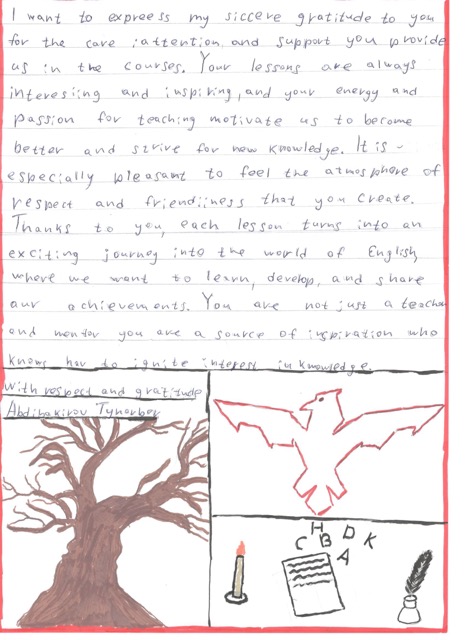 I want to expreess my siccere gratitude to you
for the care ,attention and support you provide
us in the courses. Your lessons are always
interesiing and inspiring,and your energy and
passion for teaching motivate us to become
better and strive for new knowledge. It is -
especially pleasant to feel the atmosphere of
respect and friendiiness that you create.
Thanks to you, each lesson turns into an
exciting journey into the world of English
where we want to learn, develop, and share
our achievements. You are not just a teacher
and mentor you are a source of inspiration who
knows how to ignite interest in knowledge.
with respect and gratitude
Abdibakirov Tynarbek
H
C B D K
A